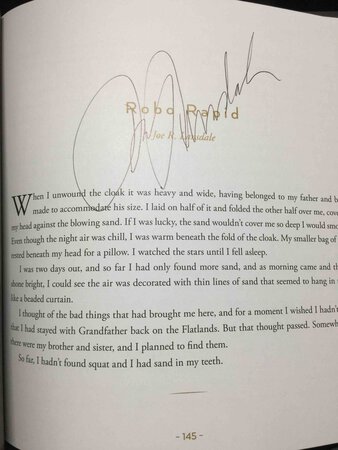 Robo Rapid
Joe R. Lansdale
When I unwound the cloak it was heavy and wide, having belonged to my father and
made to accommodate his size. I laid on half of it and folded the other half over me,
my head against the blowing sand. If I was lucky, the sand wouldn't cover me so deep I would
Even though the night air was chill, I was warm beneath the fold of the cloak. My smaller bag of
rested beneath my head for a pillow. I watched the stars until I fell asleep.
I was two days out, and so far I had only found more sand, and as morning came and
shone bright, I could see the air was decorated with thin lines of sand that seemed to hang
like a beaded curtain.
I thought of the bad things that had brought me here, and for a moment I wished I
that I had stayed with Grandfather back on the Flatlands. But that thought passed.
there were my brother and sister, and I planned to find them.
So far, I hadn't found squat and I had sand in my teeth.
- 145 -